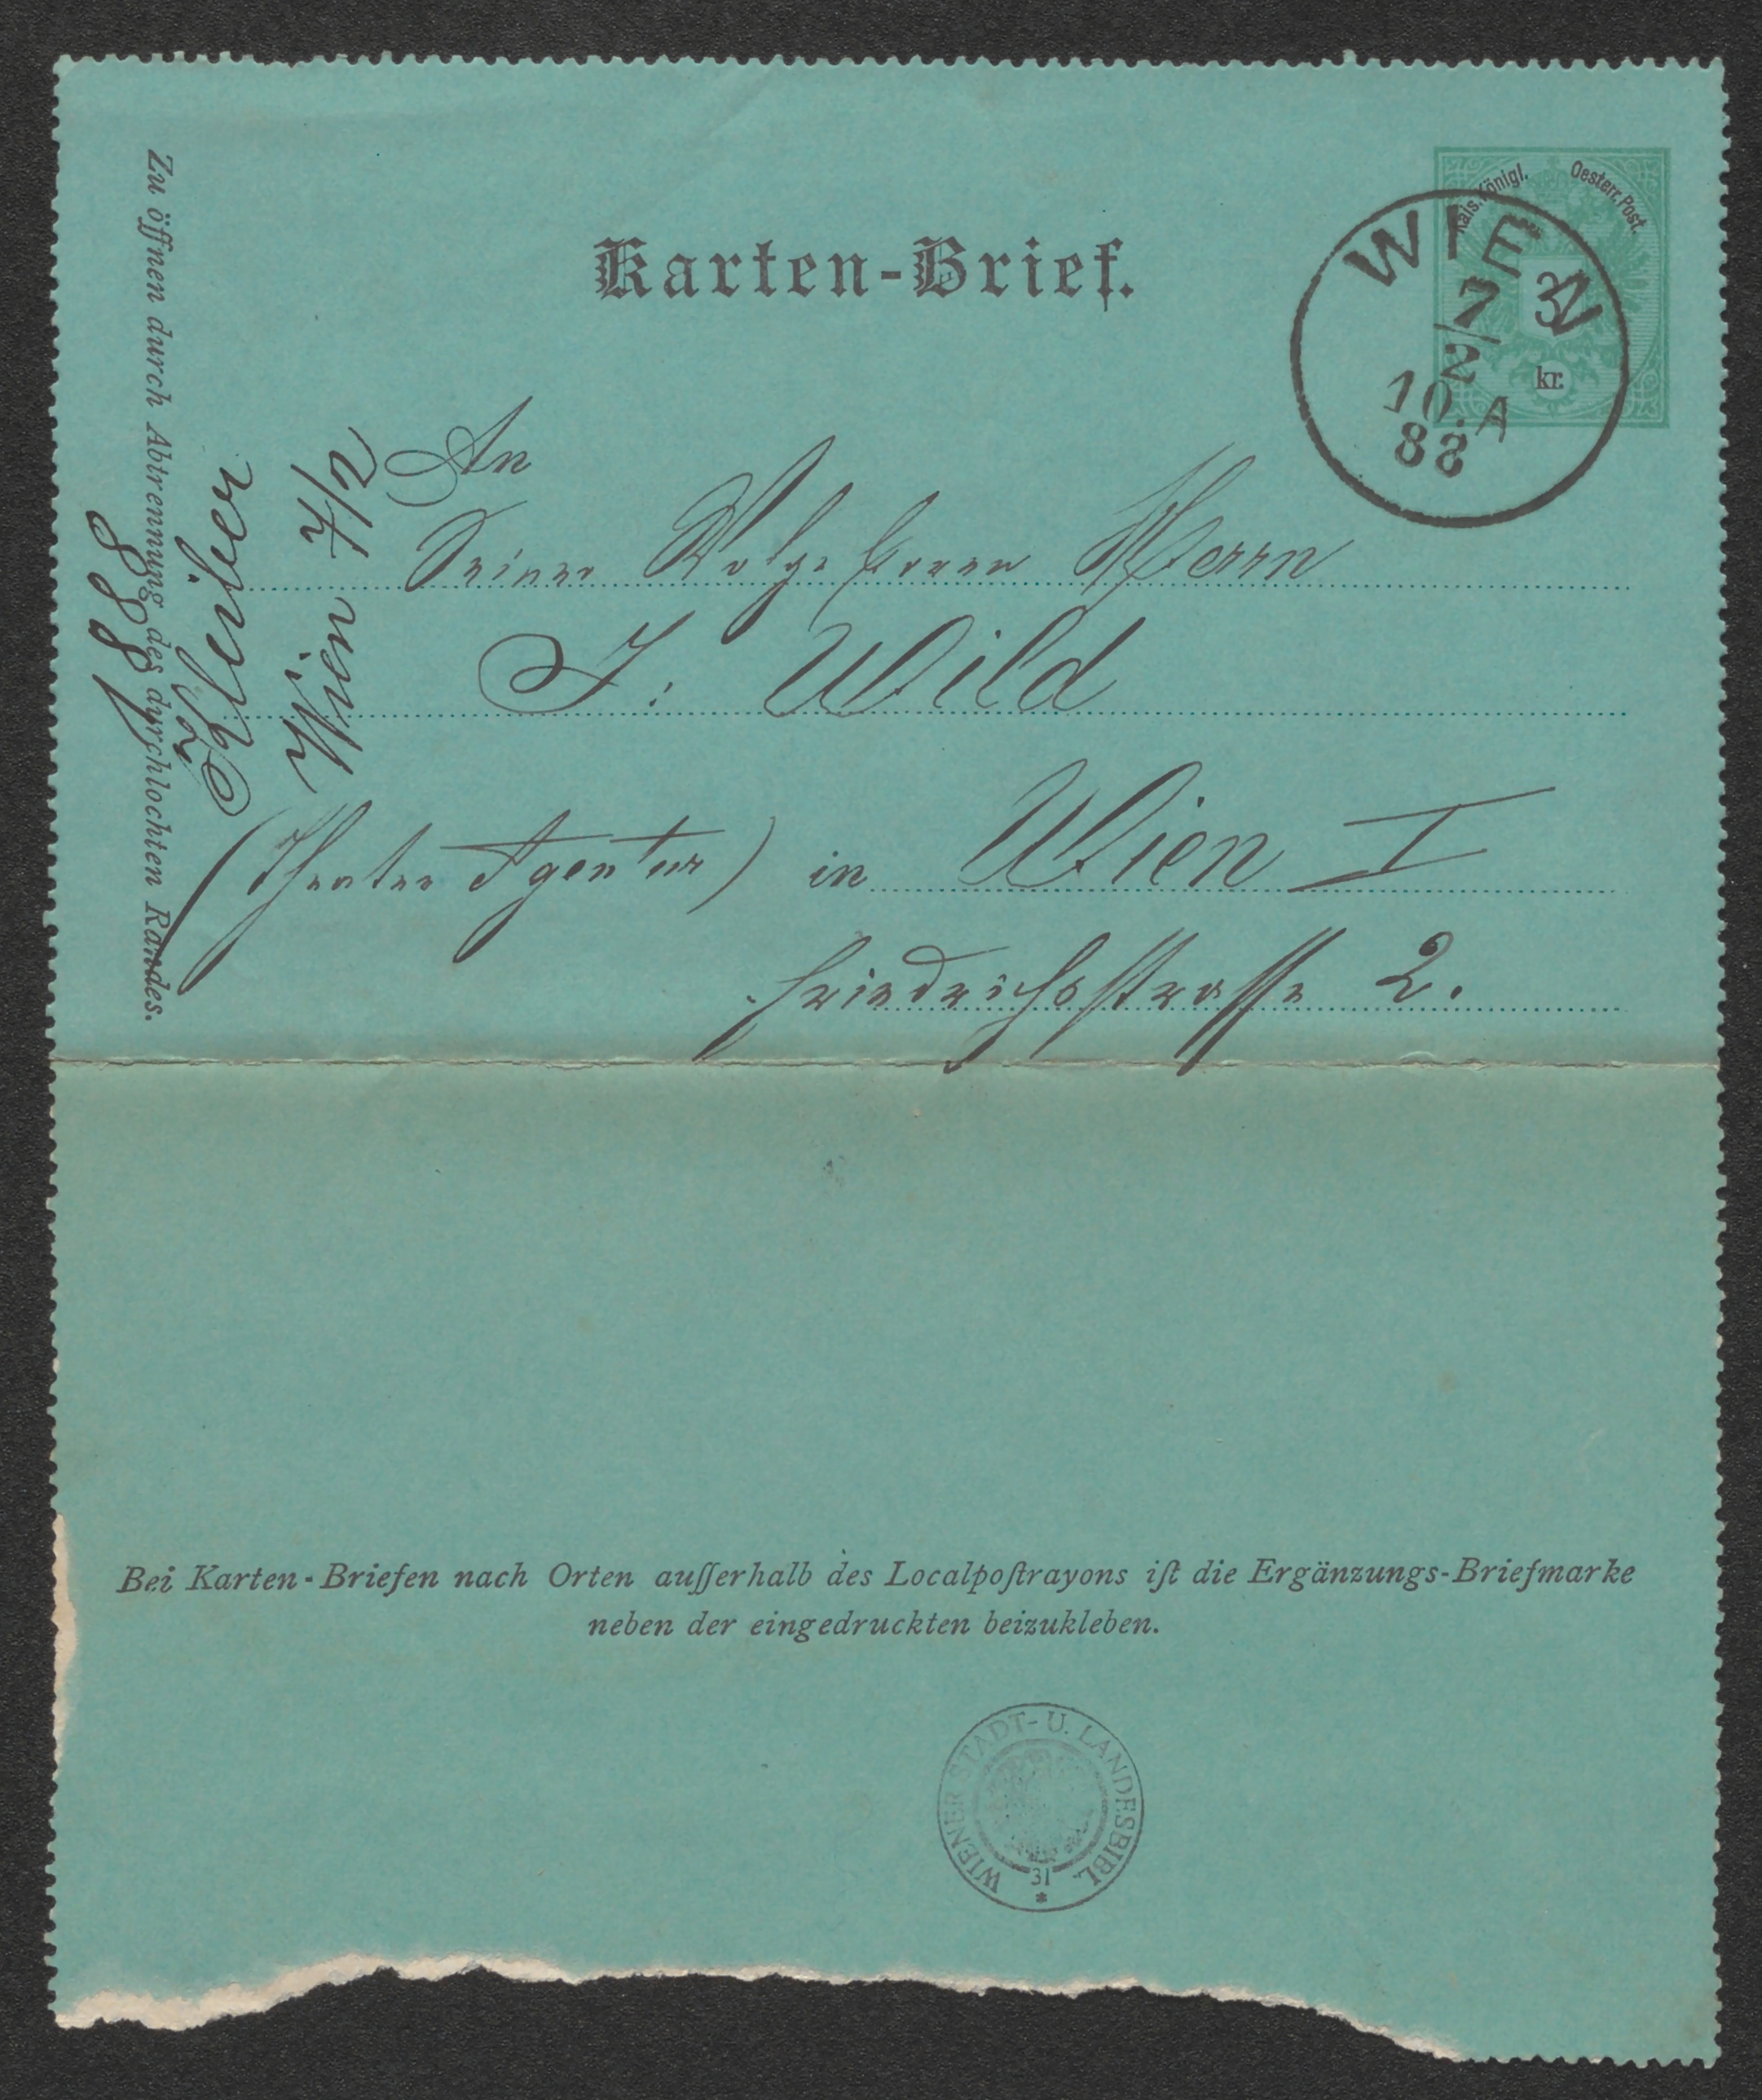 Kais. Königl. Oesterr. Post
3
kr.
WIEN
7/2
10.A
88
Karten-Brief.
Zu öffnen durch Abtrennung des durchlochten Randes.
Wien 7/2
1888
An
Seiner Wolgeboren Herrn
J. Wild
(Theater Agentur) in Wien I
Friedrichsstrasse 2.
Bei Karten-Briefen nach Orten auſſerhalb des Localpoſtrayons iſt die Ergänzungs-Briefmarke
neben der eingedruckten beizukleben.
WIENER STADT- U. LANDESBIBL.
31
*